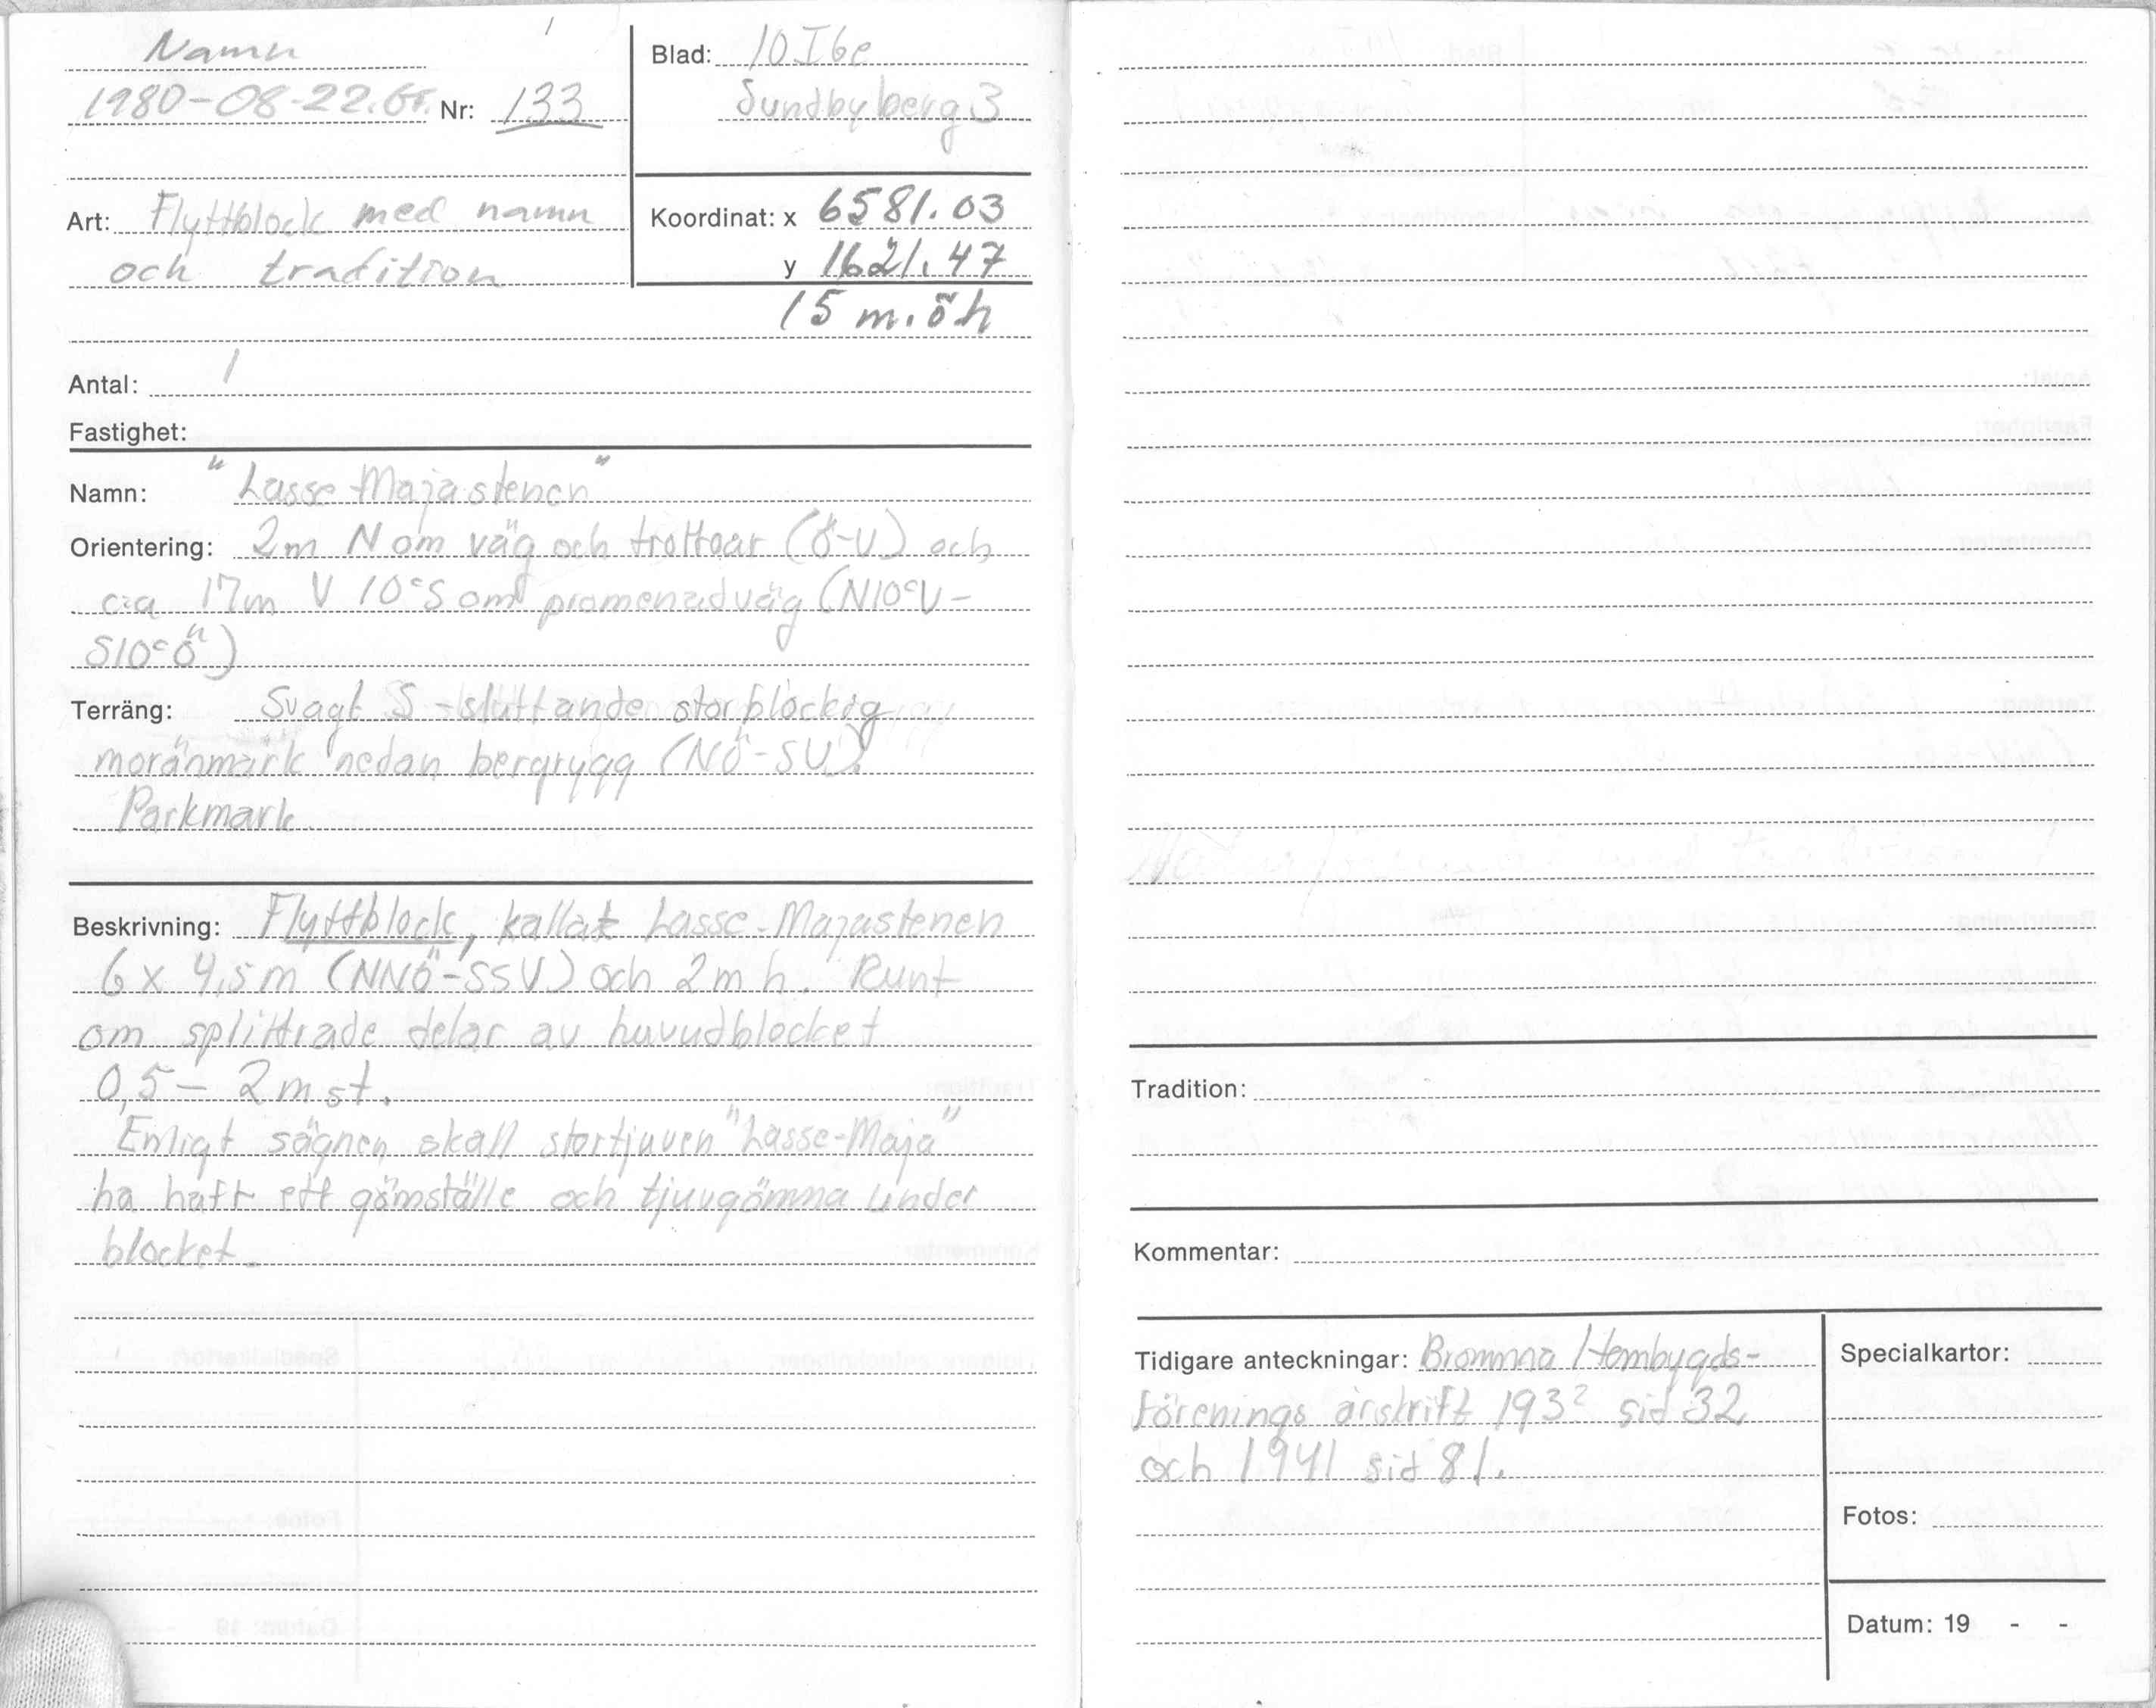 Namn
1980-08-22. Nr: 133
Blad: 10I6e
Sundbyberg 3
Art: Flyttblock med namn
och tradition
Koordinat: x 6581.03
y 1621.47
15 m.öh
Antal: 1
Fastighet:
Namn: "Lasse-Majastenen"
Orientering: 2m N om väg och trottoar (Ö-V) och
ca 17m V 10°S om promenadväg (N10°V-
S10°Ö)
Terräng: Svagt S-sluttande storblockig
moränmark nedan bergrygg (NÖ-SV).
Parkmark
Beskrivning: Flyttblock, kallat Lasse-Majastenen
6 x 4,5 m (NNÖ-SSV) och 2 m h. Runt
om splittrade delar av huvudblocket
0,5 - 2 m st.
Enligt sägnen skall stortjuven "Lasse-Maja"
ha haft ett gömställe och tjuvgömma under
blocket.
Tradition:
Kommentar:
Tidigare anteckningar: Bromma Hembygds-
förenings årskrift 1932 sid 32
och 1941 sid 81.
Specialkartor:
Fotos:
Datum: 19 - -